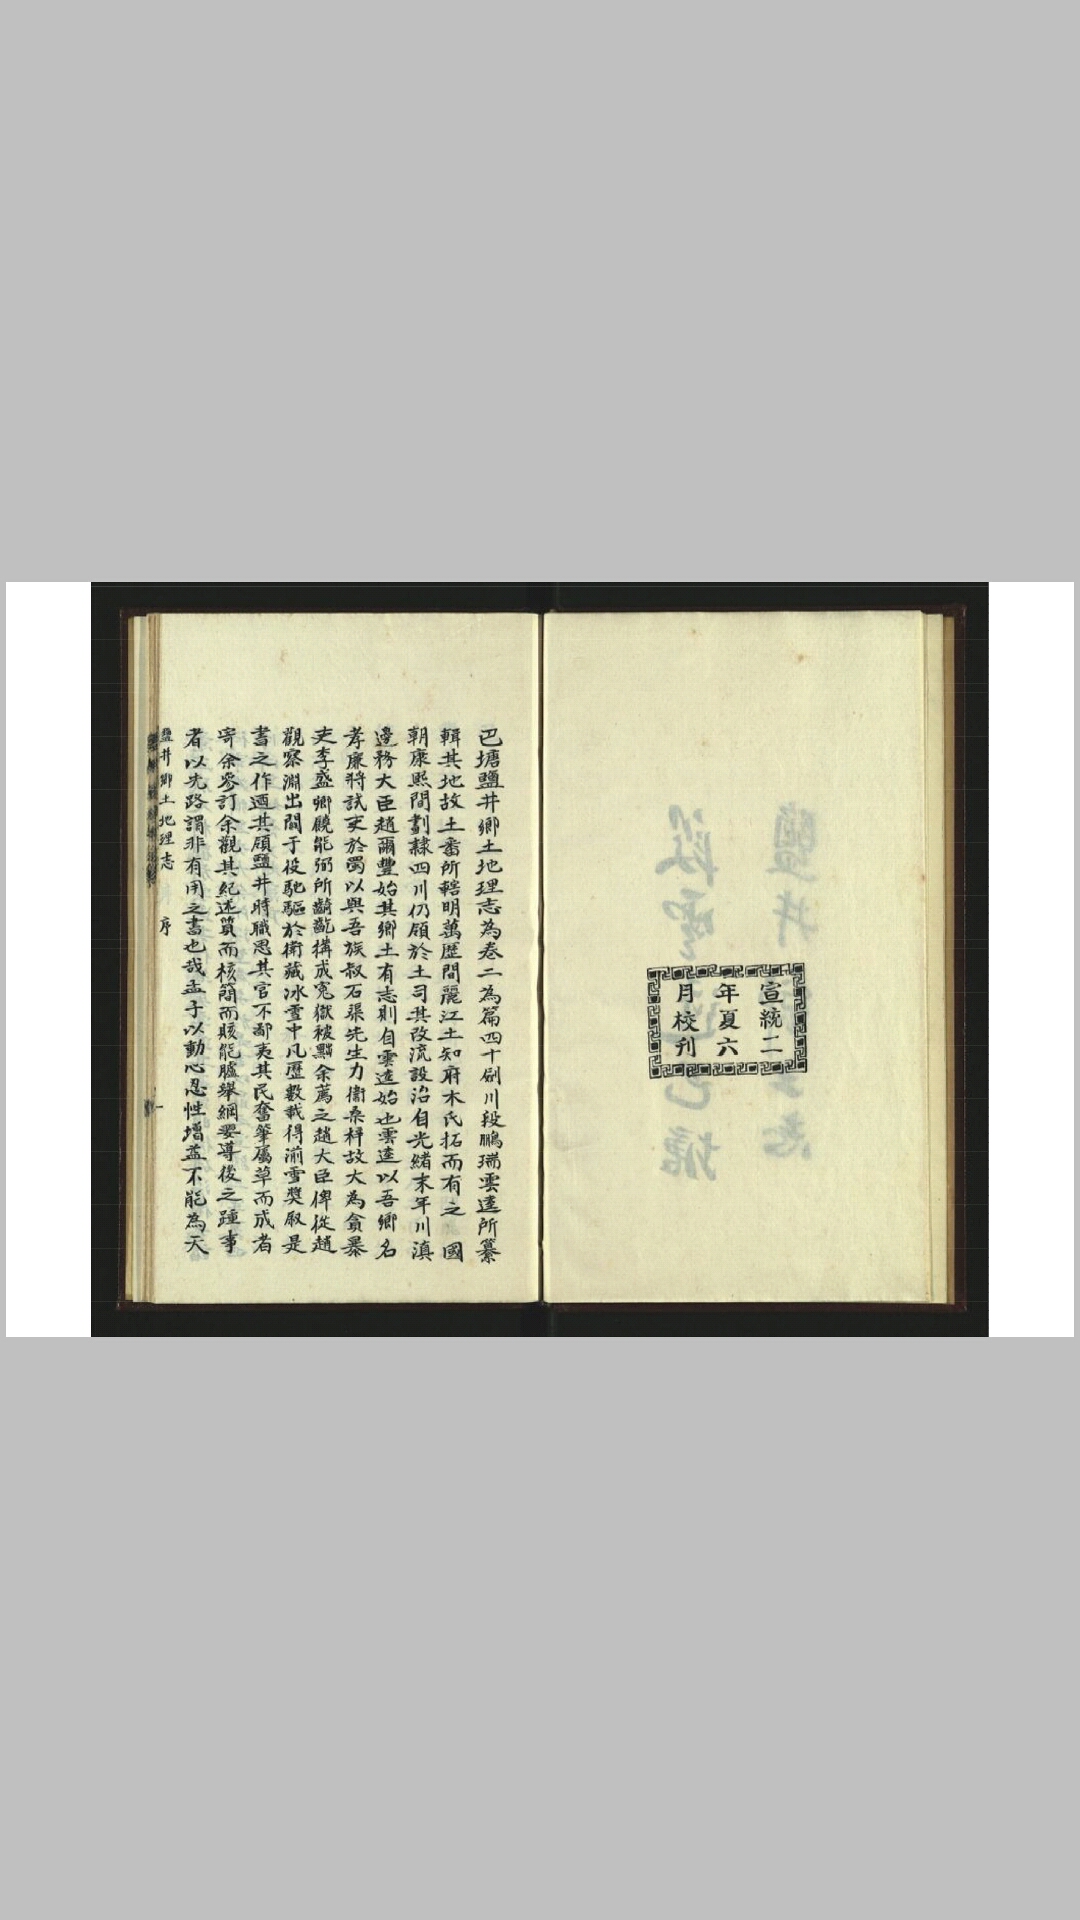 宣統二
年夏六
月校刋
巴塘鹽井鄉土地理志為卷二為篇四十劍川段鵬瑞雲逵所纂
輯其地故土番所轄明萬歷間麗江土知府木氏拓而有之 國
朝康熙間劃隸四川仍領於土司其改流設治自光緒末年川滇
邊務大臣趙爾豐始其鄉土有志則自雲逵始也雲逵以吾鄉名
孝廉將試吏於蜀以與吾族叔石渠先生力衛桑梓故大為貪暴
吏李盛卿饒能弼所齮齕搆成冤獄被黜余薦之趙大臣俾從趙
觀察淵出間于役馳驅於衛藏冰雪中凡歷數載得湔雪獎敘是
書之作迺其領鹽井時職思其官不鄙夷其民奮筆屬草而成者
寄余參訂余觀其紀述質而核簡而賅能臚舉綱要導後之踵事
者以先路謂非有用之書也哉孟子以動心忍性增益不能為天
鹽井鄉土地理志 序 一